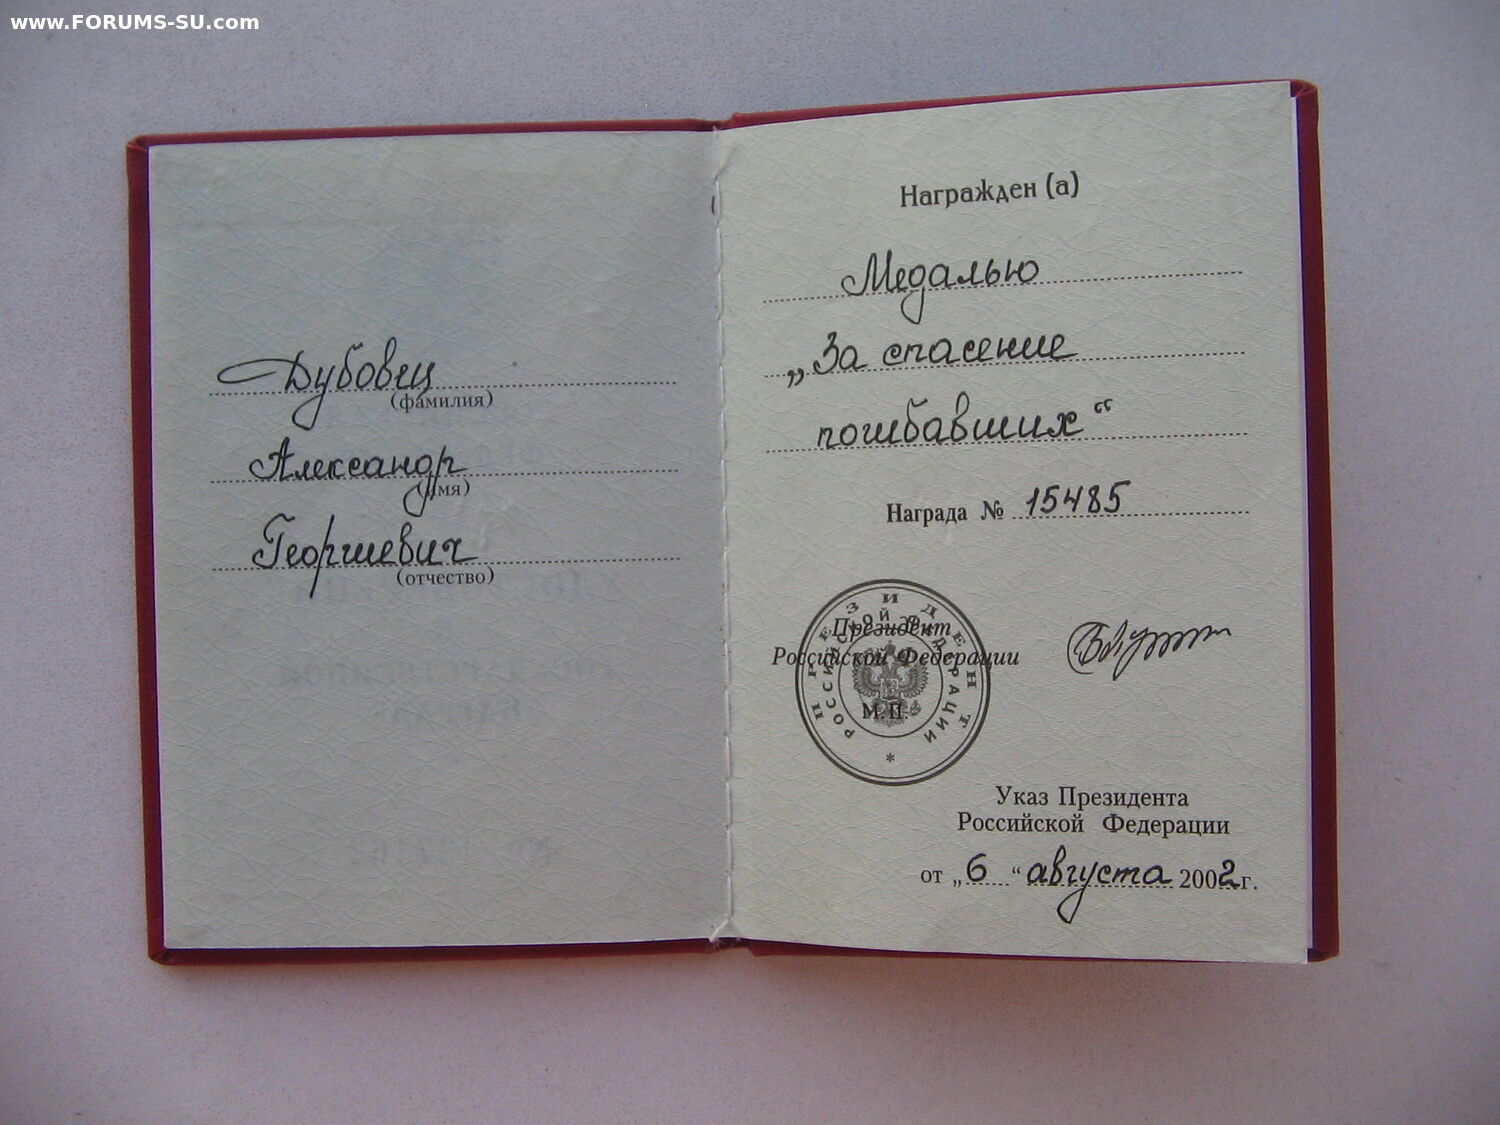 www.FORUMS-SU.com
Дубовец
(фамилия)
Александр
(имя)
Георгиевич
(отчество)
Награжден (а)
Медалью
„За спасение
погибавших“
Награда № 15485
ПРЕЗИДЕНТ
РОССИЙСКОЙ ФЕДЕРАЦИИ
*
Президент
Российской Федерации
М.П.
Указ Президента
Российской Федерации
от „6“ августа 2002г.